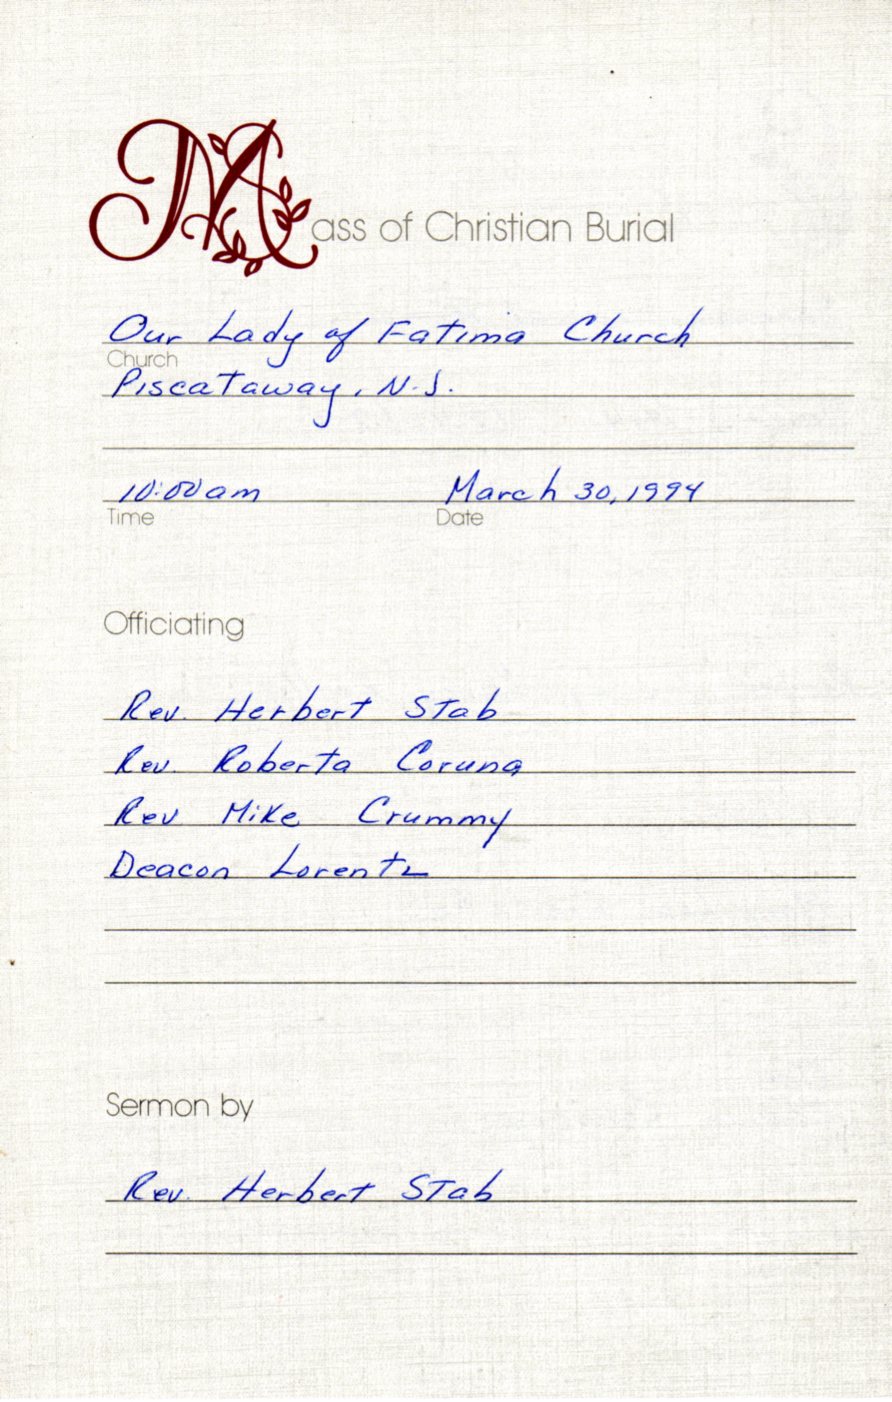 Mass of Christian Burial
Our Lady of Fatima Church
Church
Piscataway, N.J.
10:00 am March 30, 1994
Time Date
Officiating
Rev. Herbert Stab
Rev. Roberta Coruna
Rev Mike Crummy
Deacon Lorentz
Sermon by
Rev. Herbert Stab